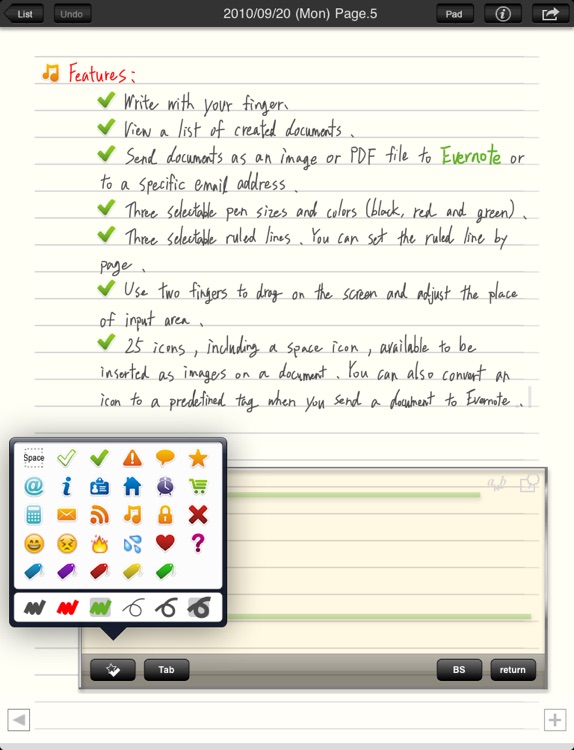 List Undo 2010/09/20 (Mon) Page.5 Pad
Features:
Write with your finger.
View a list of created documents.
Send documents as an image or PDF file to Evernote or
to a specific email address.
Three selectable pen sizes and colors (black, red and green).
Three selectable ruled lines. You can set the ruled line by
page.
Use two fingers to drag on the screen and adjust the place
of input area.
25 icons, including a space icon, available to be
inserted as images on a document. You can also convert an
icon to a predefined tag when you send a document to Evernote.
Space
Tab BS return